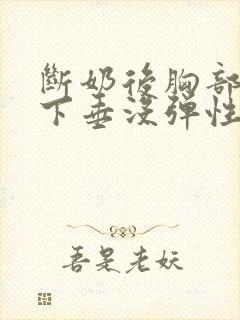 斷奶後胸部
下垂沒彈性
吾是老妖